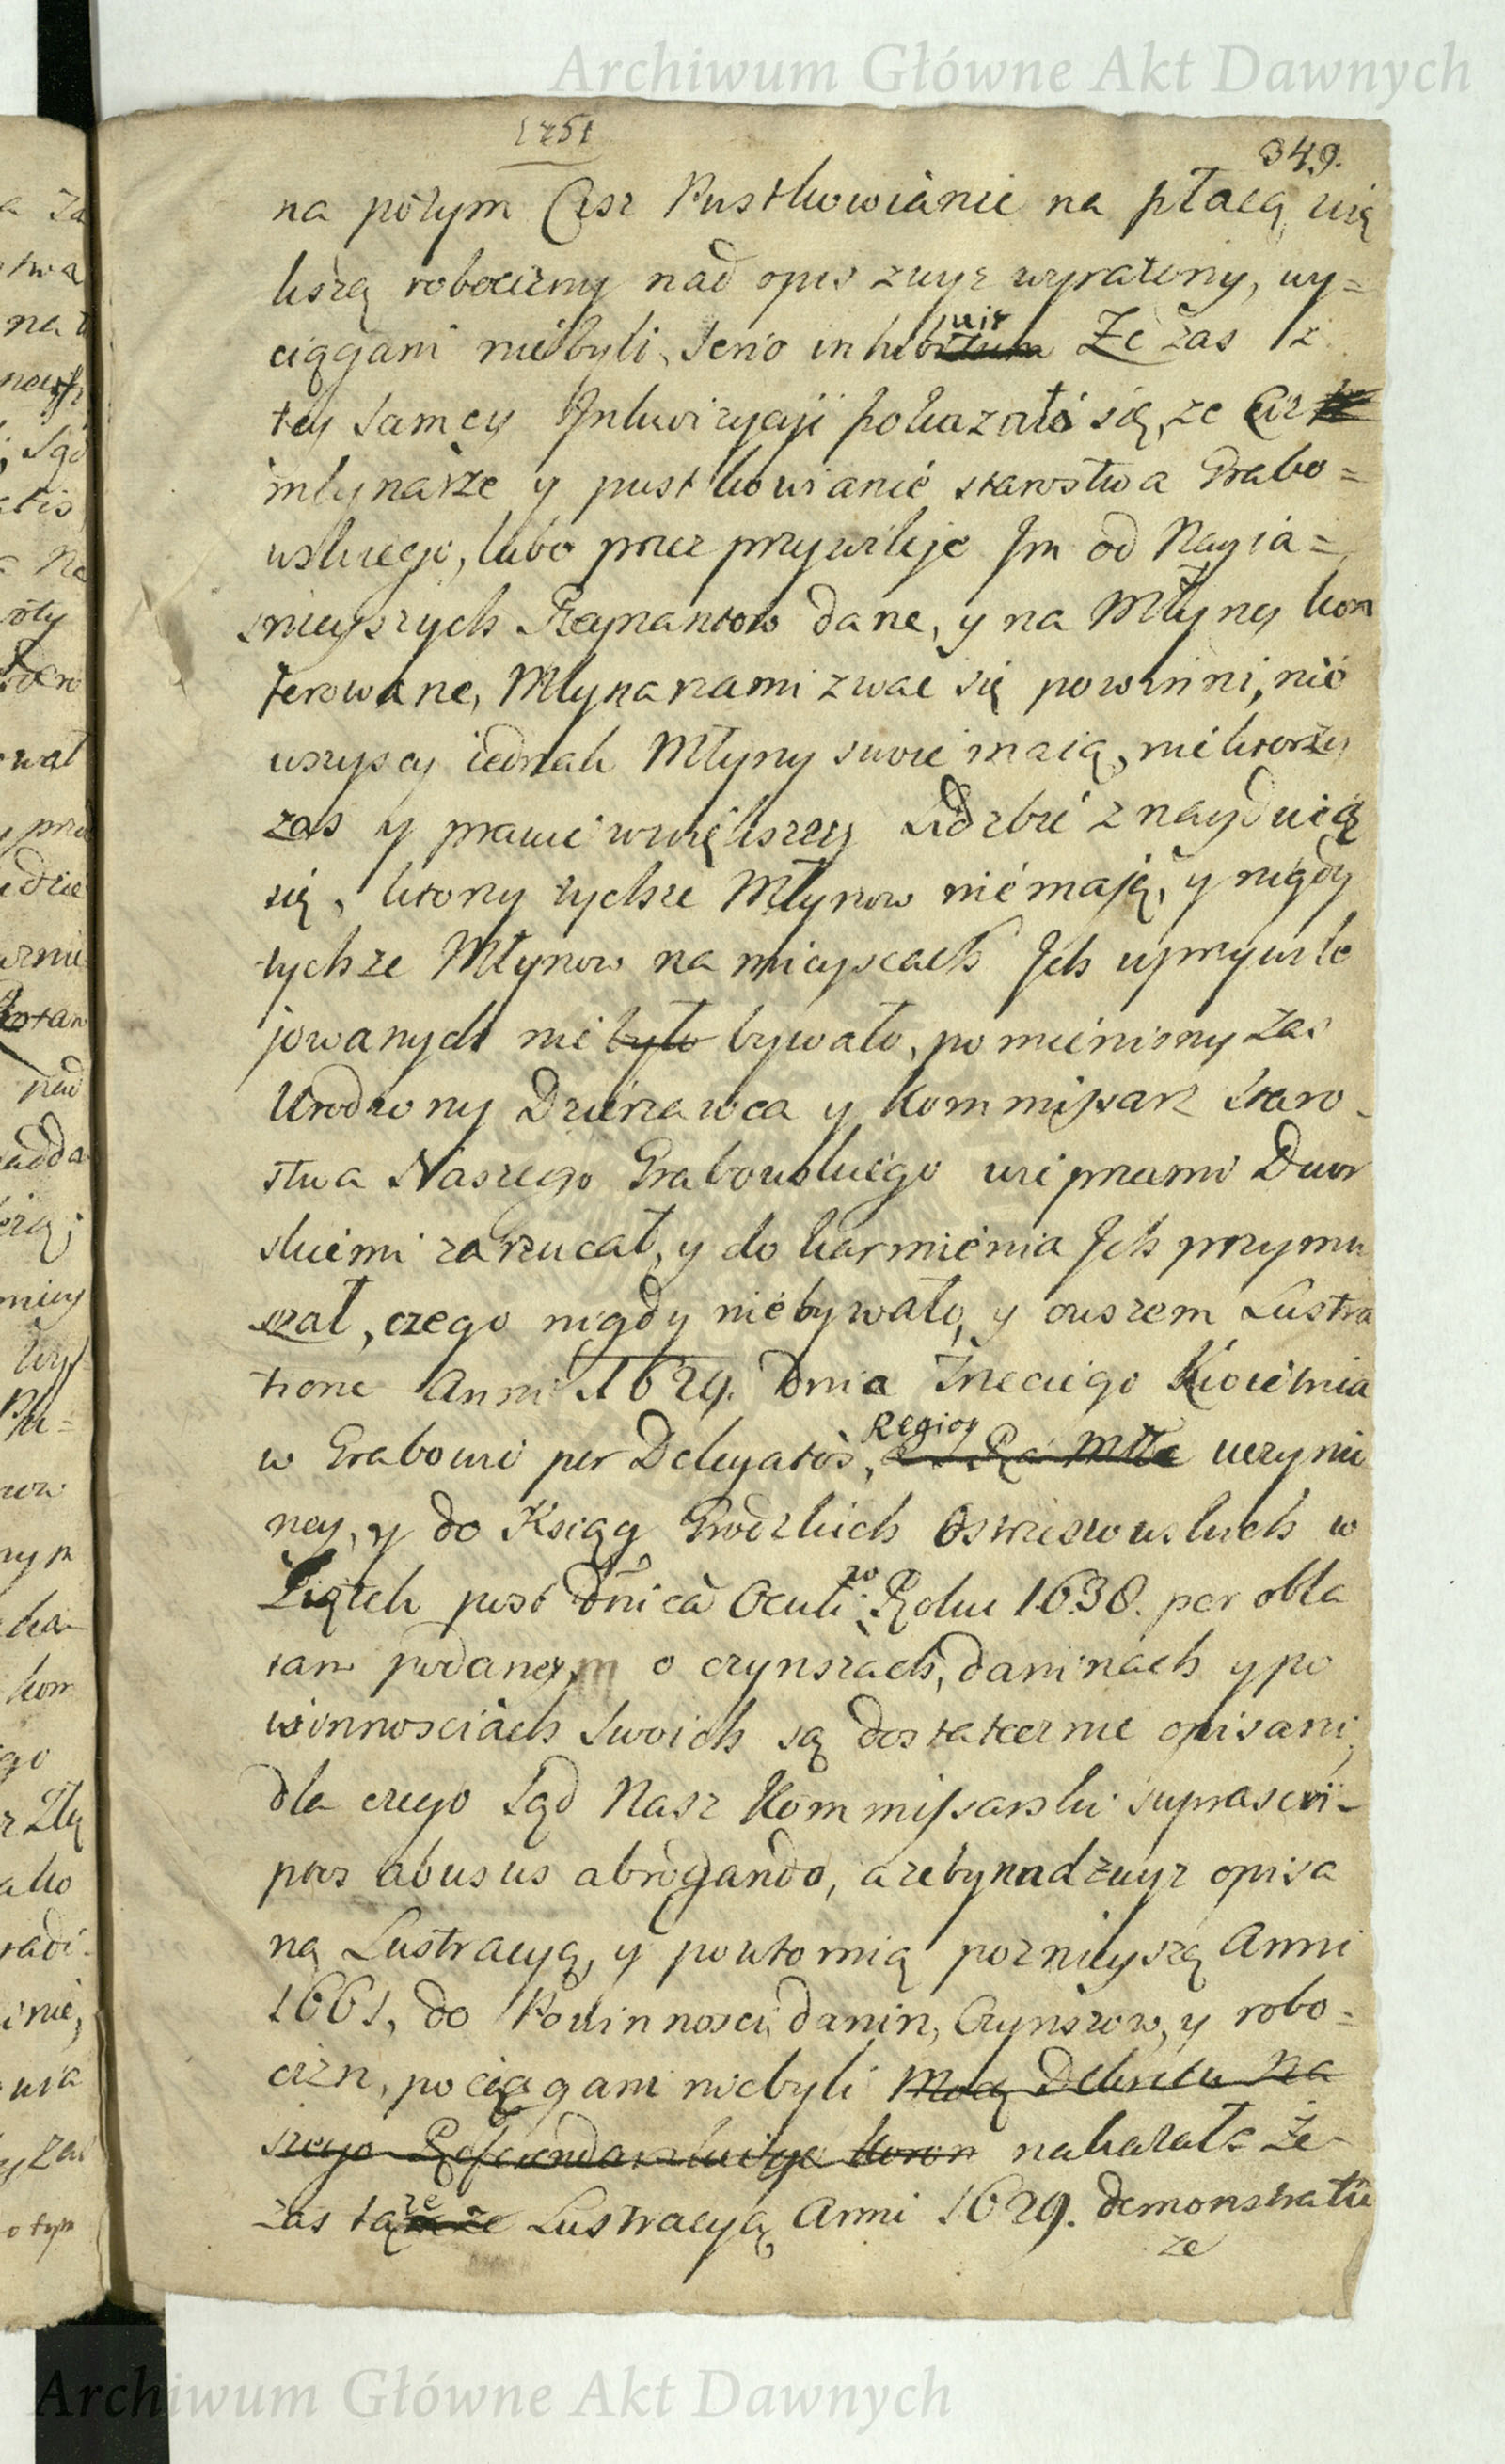 Archiwum Główne Akt Dawnych
1751
349.
na potym Ciż Pustkowianie na płacą wię
kszą robocizny nad opis zwyż wyrażony, wy=
ciągani niebyli, serio inhibuit Że zaś z
tey samey Inkwizycyi pokazało się, że Ciż
młynarze y pustkowianie starostwa Grabo=
wskiego, lubo przez przywileje Im od Nayia=
snieyszych Regnantow dane, y na Młyny kon
ferowane, Młynarzami zwać się powinni, nie
wszyscy iednak Młyny swoie maią, niektorzy
zas y prawie wwiększey Liczbie znayduią
się, ktorzy tychze Młynow niemają, y nigdy
tychze Młynow na mieyscach Ich uprzywile
jowanych nie było bywało, pomieniony zas
Urodzony Dzierzawca y Kommissarz Staro=
stwa Naszego Grabowskiego wieprzami Dwor
skiemi zarzucał, y do karmienia Ich przymu
szał, czego nigdy niebywało, y owszem Lustra
tione Anni 1629. Dnia Trzeciego Kwietnia
w Grabowie per Delegatos, Regios uczynio
ney, y do Ksiąg Grodzkich Ostrzeszowskich w
Piątek post Dnicã Oculi Roku 1638. per obla
tam podaney o czynszach, daninach y po
winnosciach swoich są dostatecznie opisani,
dla czego Sąd Nasz Kommissarski suprascri=
ptos abusus abrogando, azeby nadzwyz opisa
ną Lustracyą, y powtornią poznieyszą Anni
1661, do Powinnosci, danin, Czynszow, y robo=
cizn, pociągani niebyli Mocą Dekretu Na
szego Referendarskiego Koron nakazała Że
zas tąże Lustracyą Anni 1629. demonstratũ
ze
Archiwum Główne Akt Dawnych